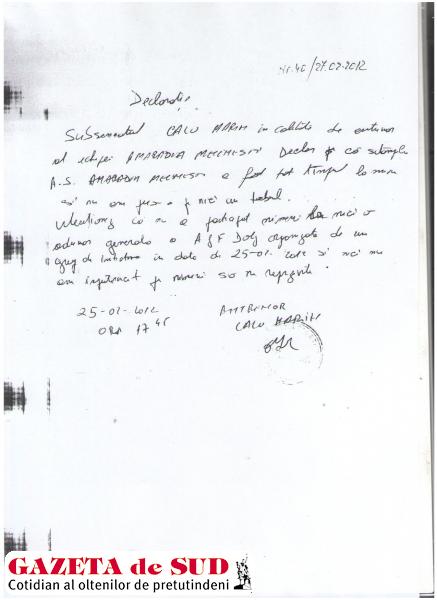 Nr. 40/27.02.2012
Declarație
Subsemnatul CALU MARIN in calitate de antrenor
al echipei AMARADIA MELINESTI Declar că ștampila
A.S. AMARADIA MELINESTI a fost tot timpul la mine
și nu am pus-o pe nici un tabel.
Menționez că nu a participat nimeni la nici o
adunare generala a AJF Dolj organizata de un
grup de in data de 25-01-2012 și nici nu
am imputernicit pe nimeni să ne reprezinte.
25-01-2012
ORA 17 45
ANTRENOR
CALU MARIN
GAZETA de SUD
Cotidian al oltenilor de pretutindeni